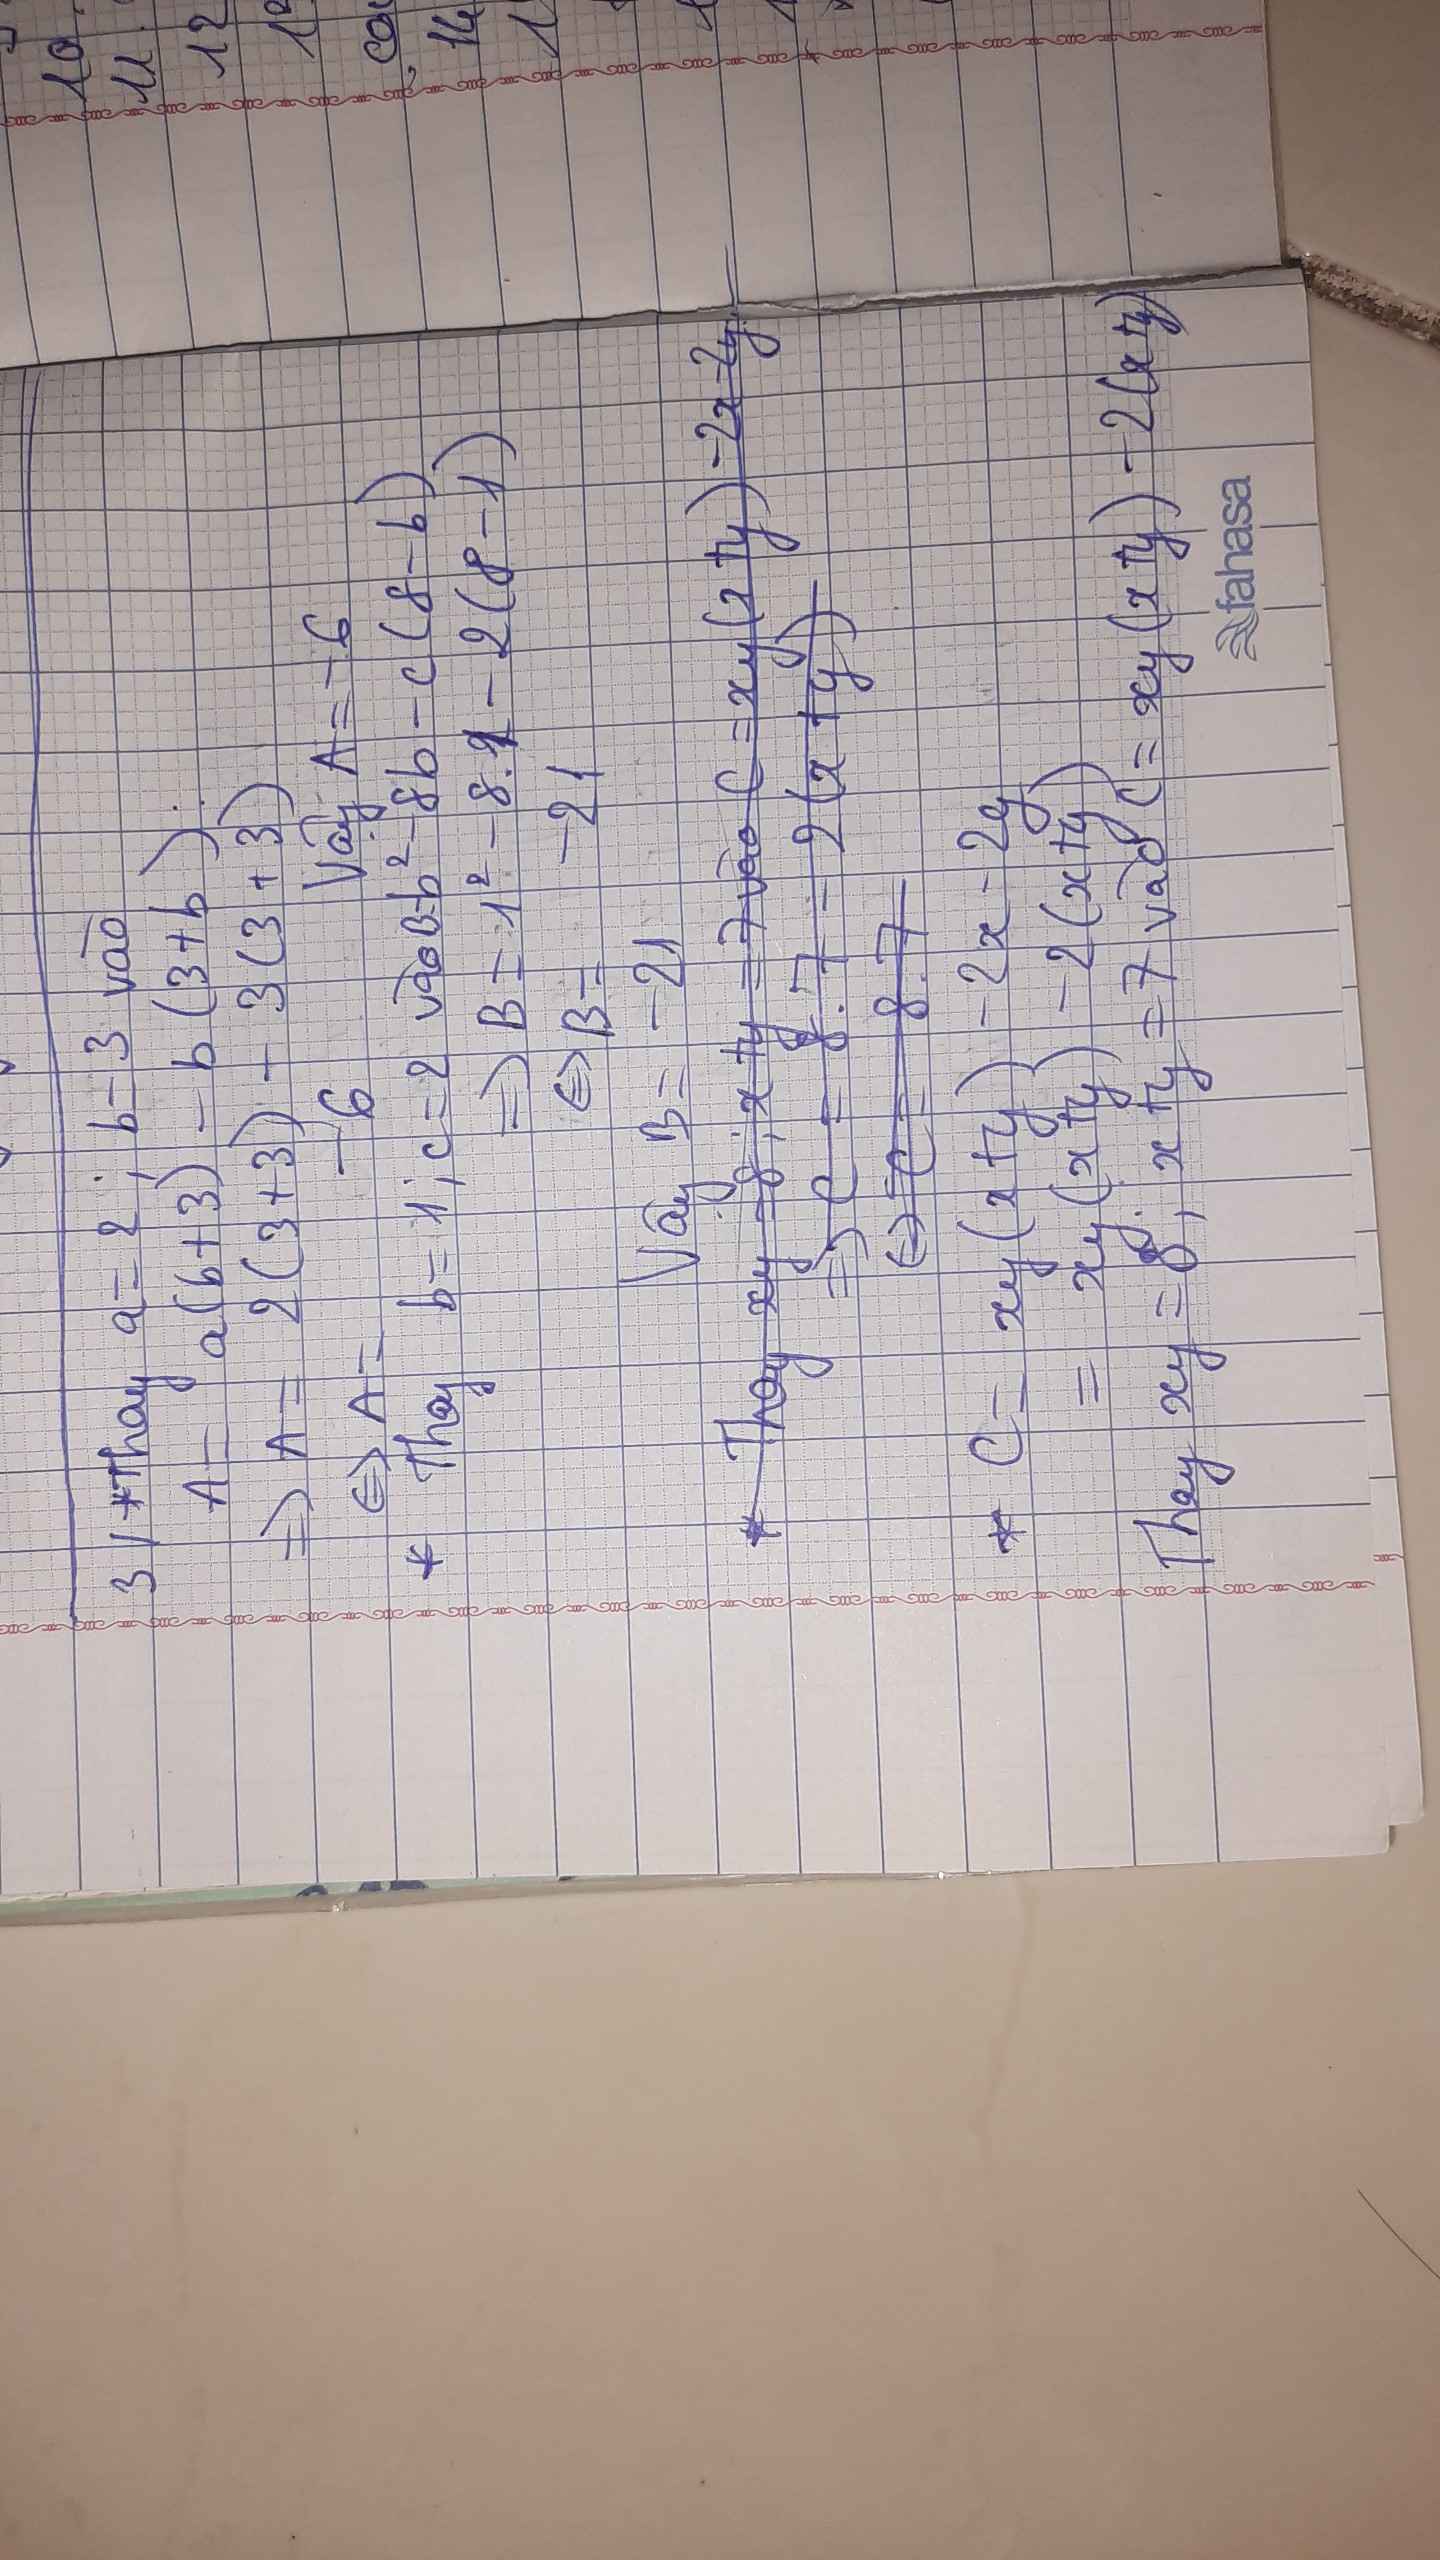 10.
11.
12
1
14
1
3/ *Thay a = 2; b = 3 vào
A = a(b+3) - b(3+b)
=> A = 2(3+3) - 3(3+3)
<=> A = -6 Vậy A = -6
* Thay b = 1; c = 2 vào B = b² - 8b - c(8 - b)
=> B = 1² - 8.1 - 2(8 - 1)
<=> B = -21
Vậy B = -21
* Thay xy = 8; x + y = 7 vào C = xy(x + y) - 2x - 2y
=> C = 8.7 - 2(x + y)
<=> C = 8.7
* C = xy(x + y) - 2x - 2y
= xy(x + y) - 2(x + y)
Thay xy = 8, x + y = 7 vào C = xy(x + y) - 2(x + y)
fahasa